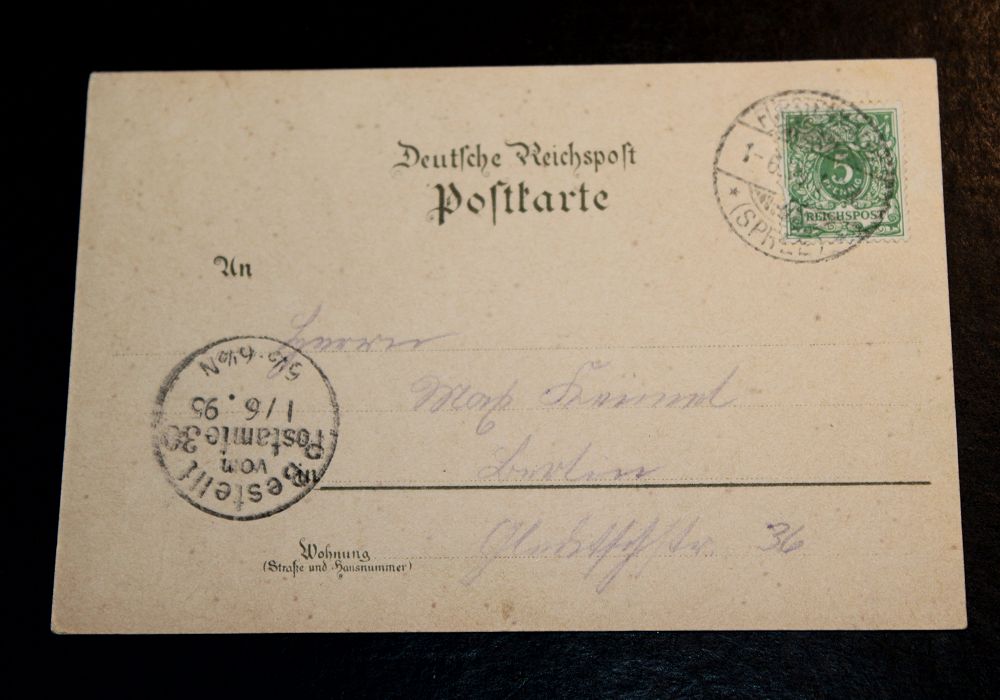 Deutsche Reichspost
Postkarte
5
PFENNIG
REICHSPOST
1-6
(SPREE)
An
Herrn
Max
Berlin
36
Wohnung
(Straße und Hausnummer)
Bestellt
vom
Postamte 30
1/6.95
5½-6½N